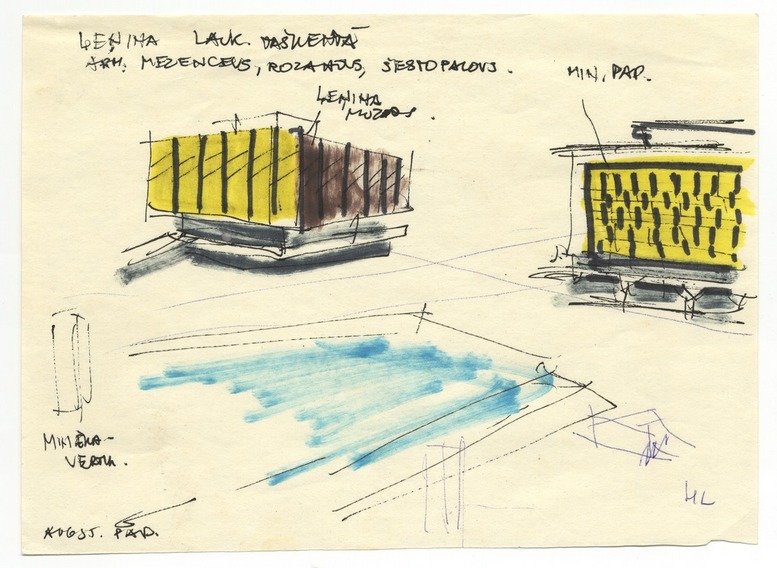 ĻEŅINA LAUK. TAŠKENTĀ
ARH. MEZENCEVS, ROZANOVS, ŠESTOPALOVS.
MIN. PAD.
ĻEŅINA
MUZEJS.
MIN. ĒKA-
VERTIK.
AUGST. PAD.